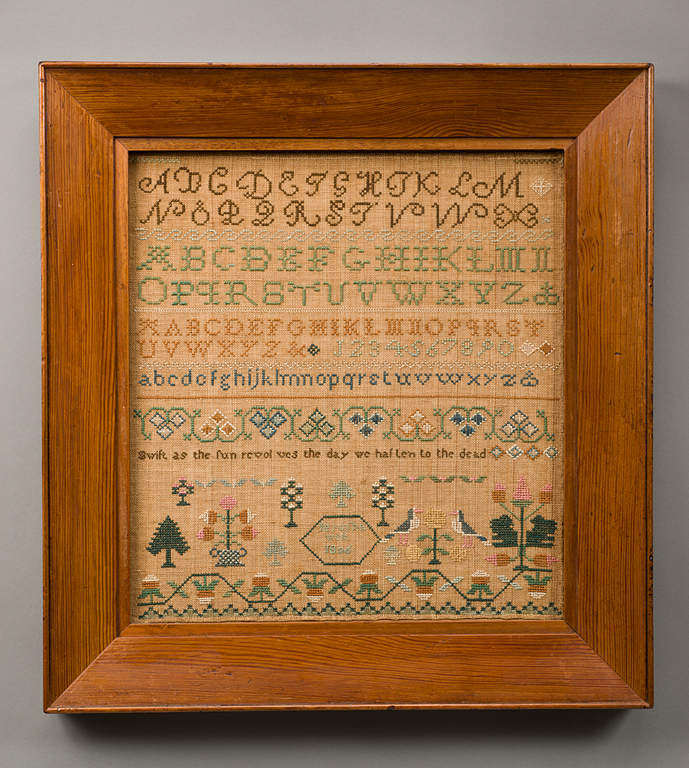 A B C D E F G H I K L M
N O P Q R S T V W
A B C D E F G H I K L M N
O P q R S T U V W X Y Z &
A B C D E F G H I K L M N O P q R S T
U V W X Y Z & 1 2 3 4 5 6 7 8 9 0
a b c d e f g h i j k l m n o p q r s t u v w x y z &
Swift as the ſun revol ves the day we haſ ten to the dead